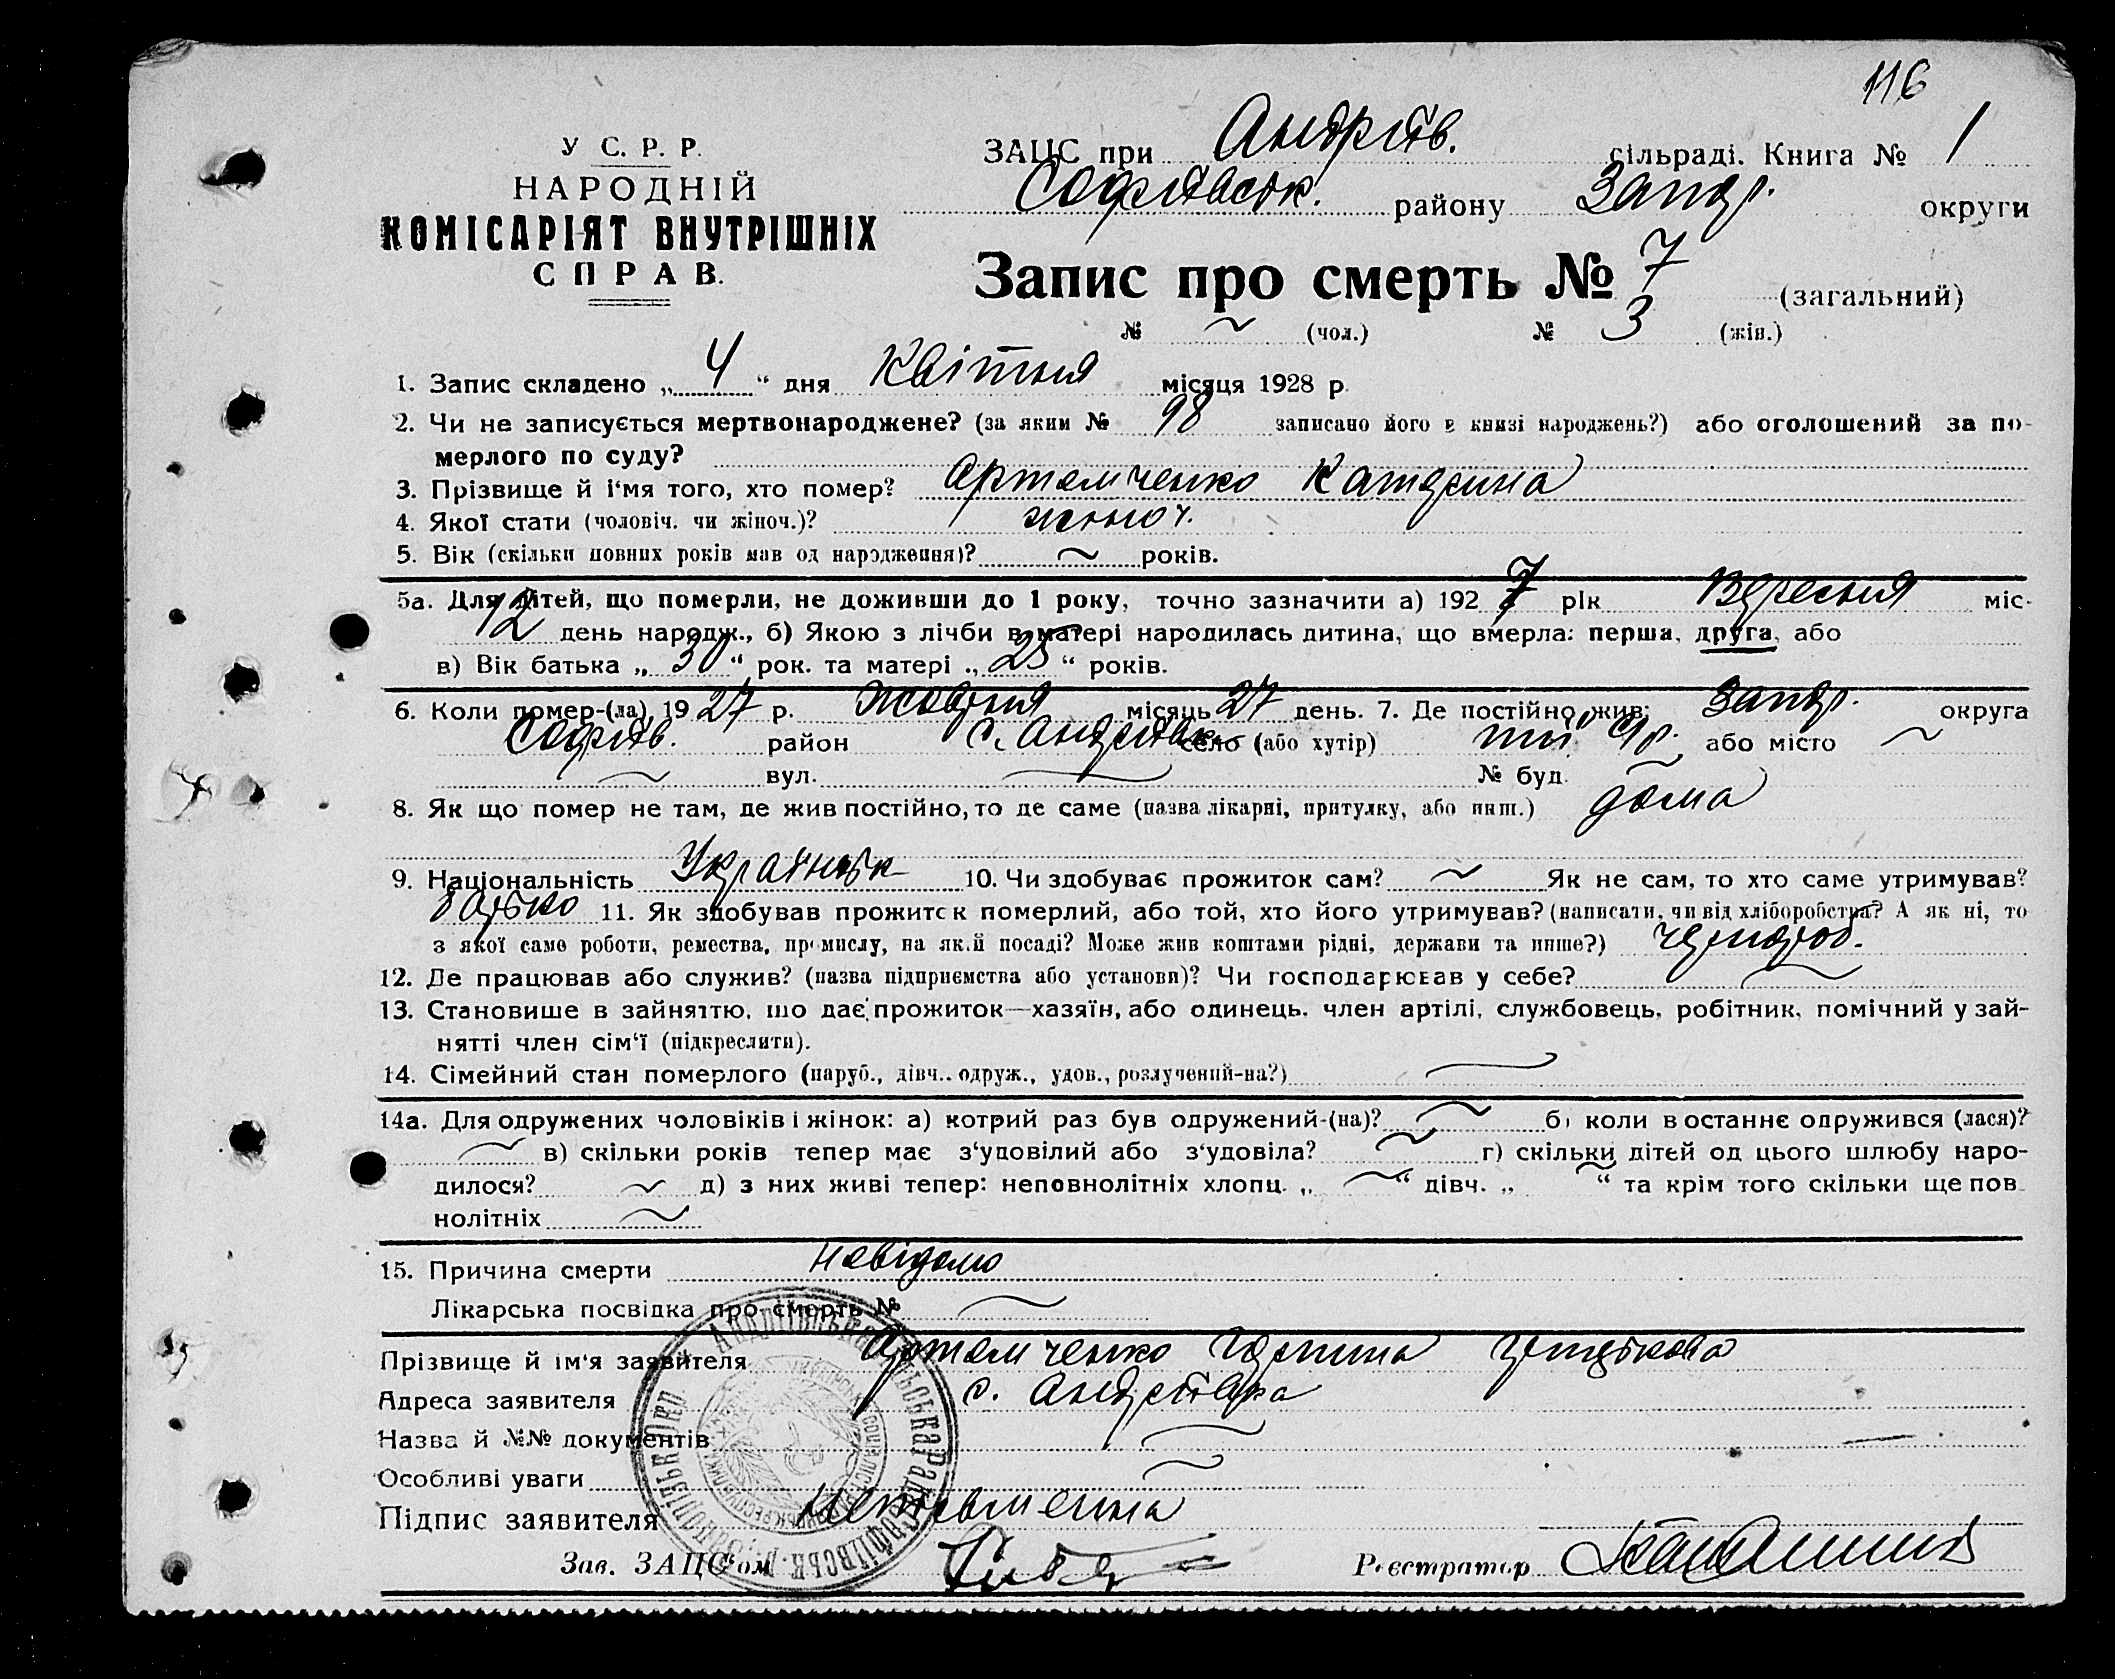 116
У С. Р. Р.
НАРОДНІЙ
КОМІСАРІЯТ ВНУТРІШНІХ
СПРАВ.
ЗАЦС при Андріїв. сільраді. Книга № 1
Софіївськ. району Запор. округи
Запис про смерть № 7 (загальний)
№ ~ (чол.) № 3 (жін.)
1. Запис складено „ 4 “ дня Квітня місяця 1928 р.
2. Чи не записується мертвонароджене? (за яким № 98 записано його в книзі народжень?) або оголошений за по-
мерлого по суду?
3. Прізвище й і'мя того, хто помер? Артемченко Катерина
4. Якої стати (чоловіч. чи жіноч.)? жіноч.
5. Вік (скільки повних років мав од народження)? ~ років.
5а. Для дітей, що померли, не доживши до 1 року, точно зазначити а) 1927 рік Вересня міс-
12 день народж., б) Якою з лічби в матері народилась дитина, що вмерла: перша, друга, або
в) Вік батька „ 30 “ рок. та матері „ 25 “ років.
6. Коли помер-(ла) 1927 р. Жовтня місяць 27 день. 7. Де постійно жив: Запор. округа
Софіїв. район с. Андріївка село (або хутір) або місто ~
~ вул. ~ № буд. ~
8. Як що помер не там, де жив постійно, то де саме (назва лікарні, притулку, або инш.) дома
9. Національність Українськ 10. Чи здобуває прожиток сам? ~ Як не сам, то хто саме утримував?
батько 11. Як здобував прожиток померлий, або той, хто його утримував? (написати, чи від хліборобства? А як ні, то
з якої саме роботи, ремества, промислу, на якій посаді? Може жив коштами рідні, держави та инше?)
12. Де працював або служив? (назва підприємства або установи)? Чи господарював у себе? ~
13. Становище в зайняттю, що дає прожиток—хазяїн, або одинець, член артілі, службовець, робітник, помічний у зай-
нятті член сім'ї (підкреслити).
14. Сімейний стан померлого (паруб., дівч., одруж., удов., розлучений-на?) ~
14а. Для одружених чоловіків і жінок: а) котрий раз був одружений-(на)? ~ б) коли востаннє одружився (лася)?
~ в) скільки років тепер має з'удовілий або з'удовіла? ~ г) скільки дітей од цього шлюбу наро-
дилося? ~ д) з них живі тепер: неповнолітніх хлопц. „ ~ “ дівч. „ ~ “ та крім того скільки ще пов-
нолітніх ~
15. Причина смерти невідомо
Лікарська посвідка про смерть № ~
Прізвище й ім'я заявителя Артемченко
Адреса заявителя с. Андріївка
Назва й №№ документів ~
Особливі уваги ~
Підпис заявителя неписьменна
Зав. ЗАЦС'ом Реєстратор